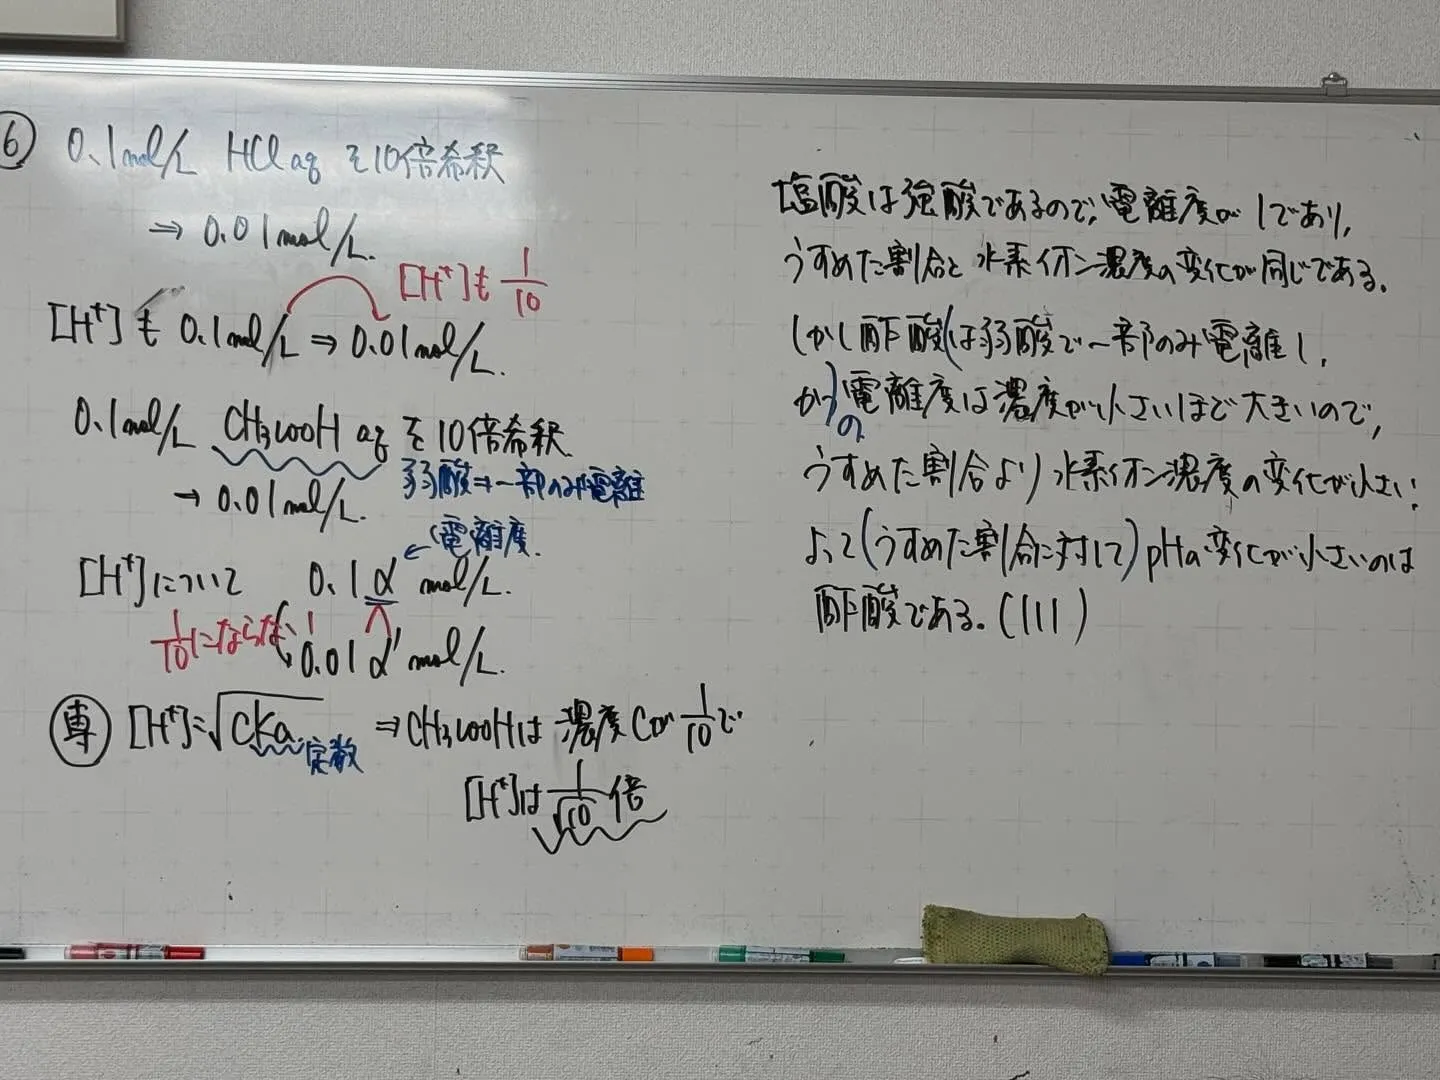 ⑥ 0.1mol/L HCl aq を10倍希釈
⇒ 0.01mol/L.
[H⁺]も 1/10
[H⁺] も 0.1mol/L ⇒ 0.01mol/L.
0.1mol/L CH₃COOH aq を10倍希釈.
弱酸⇒一部のみ電離
→ 0.01mol/L.
←電離度.
[H⁺]について 0.1α mol/L.
1/10にならない
0.01α' mol/L.
専 [H⁺]=√CKa 定数 ⇒CH₃COOHは 濃度Cが 1/10で
[H⁺]は 1/√10 倍
塩酸は強酸であるので,電離度が1であり,
うすめた割合と水素イオン濃度の変化が同じである。
しかし酢酸は弱酸で一部のみ電離し,
かつ電離度は濃度が小さいほど大きいので,
の
うすめた割合より水素イオン濃度の変化が小さい.
よって(うすめた割合に対して)pHの変化が小さいのは
酢酸である。(111)